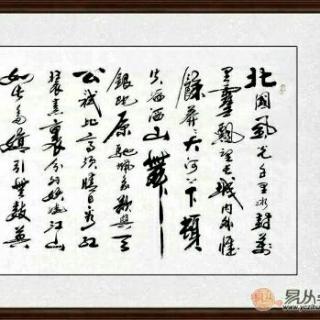 北國風光千里冰封萬
里雪飄望長城内外惟
餘莽莽大河上下頓
失滔滔山舞
銀蛇原馳蠟象欲與天
公試比高須晴日看紅
裝素裹分外妖嬈江山
如此多嬌引無數英
易从